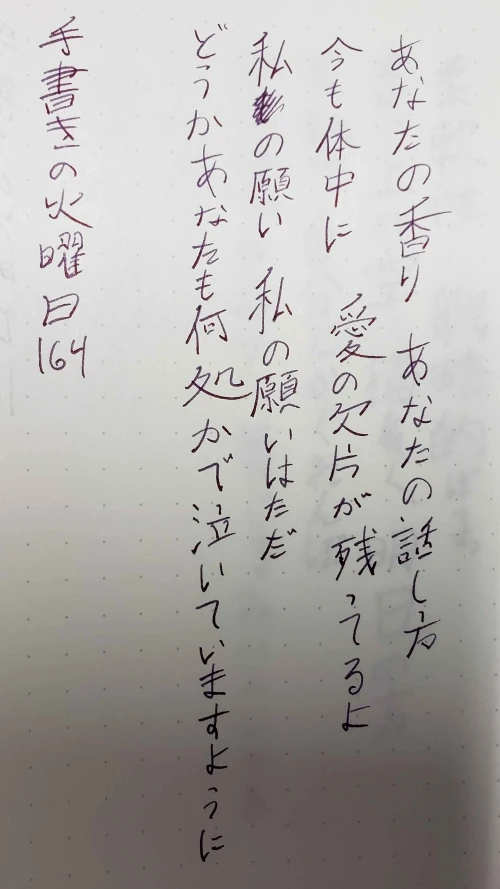 あなたの香り あなたの話し方
今も体中に 愛の欠片が残ってるよ
私の願い 私の願いはただ
どうかあなたも何処かで泣いていますように
手書きの火曜日164